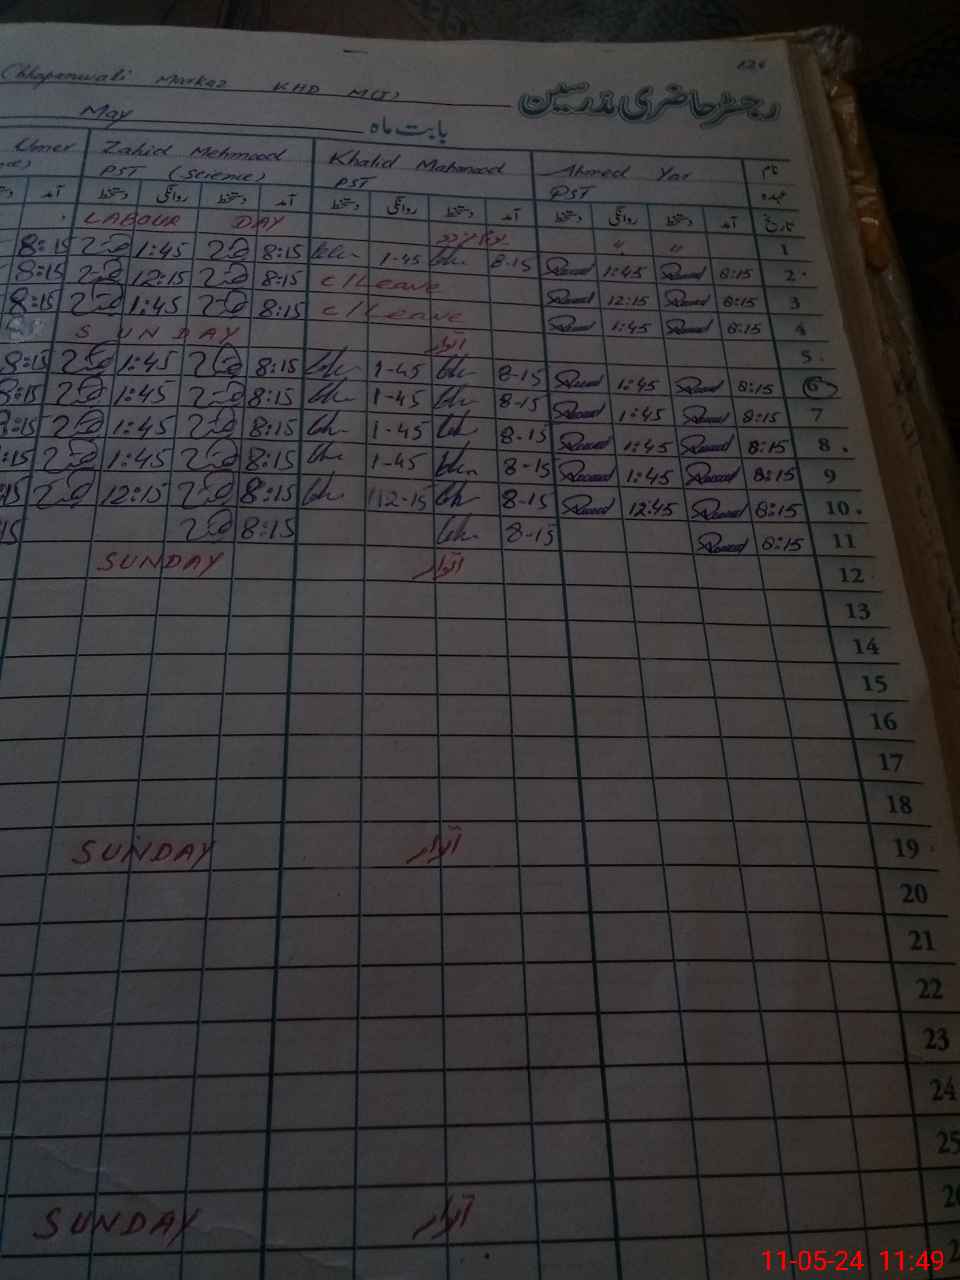 128
Chhaparwali Markaz KHD M(I) رجسٹر حاضری مدرسین
May بابت ماہ
Umer Zahid Mehmood Khalid Mahmood Ahmed Yar نام
PST (Science) PST PST عہدہ
آمد دستخط روانگی دستخط آمد دستخط روانگی دستخط آمد دستخط روانگی دستخط آمد تاریخ
LABOUR DAY " " 1
8:15 1:45 8:15 1-45 8-15 1:45 8:15 2
8:15 12:15 8:15 C/Leave 12:15 8:15 3
8:15 1:45 8:15 C/Leave 1:45 8:15 4
SUNDAY اتوار 5
8:15 1:45 8:15 1-45 8-15 1:45 8:15 6
8:15 1:45 8:15 1-45 8-15 1:45 8:15 7
8:15 1:45 8:15 1-45 8-15 1:45 8:15 8
:15 1:45 8:15 1-45 8-15 1:45 8:15 9
:15 12:15 8:15 12-15 8-15 12:45 8:15 10
15 8:15 8-15 8:15 11
SUNDAY اتوار 12
13
14
15
16
17
18
SUNDAY اتوار 19
20
21
22
23
24
25
SUNDAY اتوار
11-05-24 11:49